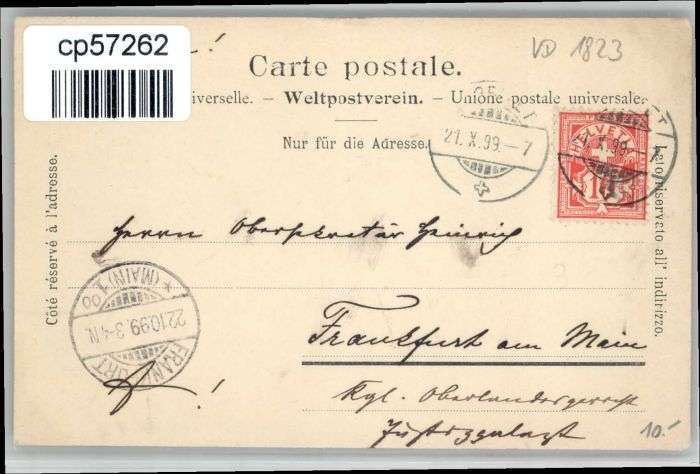 cp57262
VD 1823
Carte postale.
iverselle. – Weltpostverein. – Unione postale universale.
Nur für die Adresse.
21.X.99.–7
X.99.–
HELVETIA
10
Côté réservé à l'adresse.
Lato riservato all' indirizzo.
Herrn Obersekretär Heinrich
FRANKFURT
22.10.99.3-4N.
* (MAIN) 1.
Frankfurt am Main
Kgl. Oberlandesgericht
Justizpalast
10.-